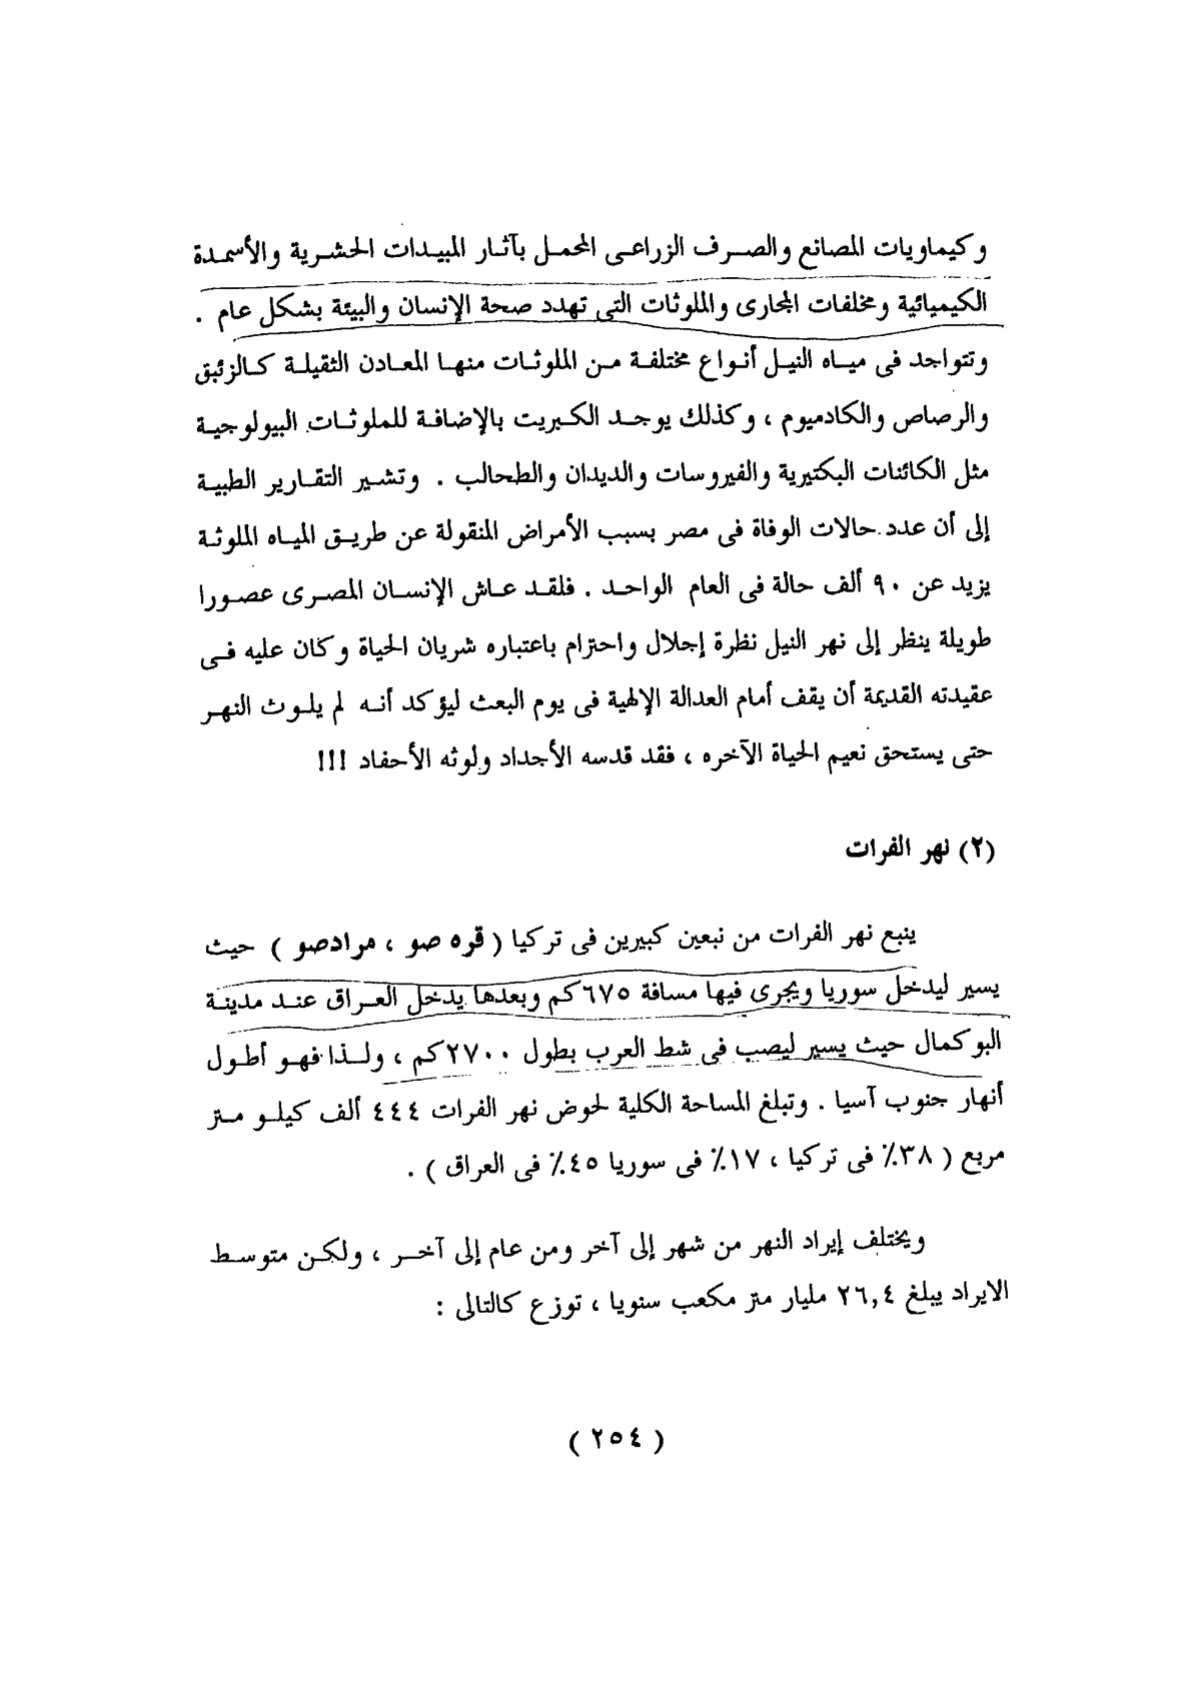 وكيماويات المصانع والصرف الزراعى المحمل بآثار المبيدات الحشرية والأسمدة
الكيميائية ومخلفات المجارى والملوثات التى تهدد صحة الإنسان والبيئة بشكل عام .
وتتواجد فى مياه النيل أنواع مختلفة من الملوثات منها المعادن الثقيلة كالزئبق
والرصاص والكادميوم ، وكذلك يوجد الكبريت بالإضافة للملوثات البيولوجية
مثل الكائنات البكتيرية والفيروسات والديدان والطحالب . وتشير التقارير الطبية
إلى أن عدد حالات الوفاة فى مصر بسبب الأمراض المنقولة عن طريق المياه الملوثة
يزيد عن ٩٠ ألف حالة فى العام الواحد . فلقد عاش الإنسان المصرى عصورا
طويلة ينظر إلى نهر النيل نظرة إجلال واحترام باعتباره شريان الحياة وكان عليه فى
عقيدته القديمة أن يقف أمام العدالة الإلهية فى يوم البعث ليؤكد أنه لم يلوث النهر
حتى يستحق نعيم الحياة الآخره ، فقد قدسه الأجداد ولوثه الأحفاد !!!
(٢) نهر الفرات
ينبع نهر الفرات من نبعين كبيرين فى تركيا ( قره صو ، مرادصو ) حيث
يسير ليدخل سوريا ويجرى فيها مسافة ٦٧٥كم وبعدها يدخل العراق عند مدينة
البوكمال حيث يسير ليصب فى شط العرب بطول ٢٧٠٠كم ، ولذا فهو أطول
أنهار جنوب آسيا . وتبلغ المساحة الكلية لحوض نهر الفرات ٤٤٤ ألف كيلو متر
مربع ( ٣٨٪ فى تركيا ، ١٧٪ فى سوريا ٤٥٪ فى العراق ) .
ويختلف إيراد النهر من شهر إلى آخر ومن عام إلى آخر ، ولكن متوسط
الايراد يبلغ ٢٦,٤ مليار متر مكعب سنويا ، توزع كالتالى :
( ٢٥٤ )